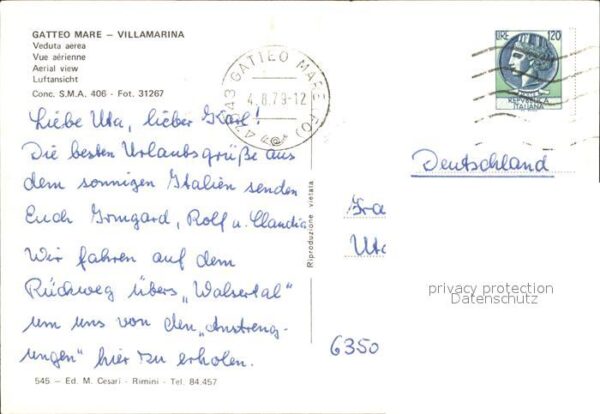 GATTEO MARE - VILLAMARINA
Veduta aerea
Vue aérienne
Aerial view
Luftansicht
Conc. S.M.A. 406 - Fot. 31267
GATTEO MARE (FO)
4.8.79-12
LIRE 120
REPVBBLICA
ITALIANA
Liebe Uta, lieber Karl!
Die besten Urlaubsgrüße aus
dem sonnigen Italien senden
Euch Irmgard, Rolf u. Claudia
Wir fahren auf dem
Rückweg übers „Walsertal"
um uns von den „Anstreng-
ungen" hier zu erholen.
Riproduzione vietata
Deutschland
Uta
privacy protection
Datenschutz
6350
545 - Ed. M. Cesari - Rimini - Tel. 84.457